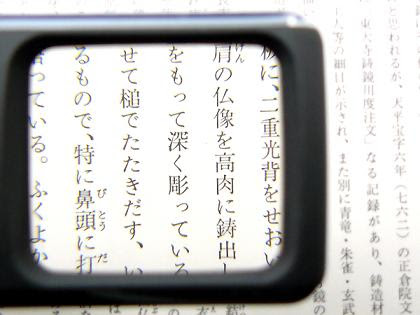 思われるが、天平宝字六年（七六二）の正倉院文
「東大寺鋳鏡用度注文」なる記録があり、鋳造材
人等の細目が示され、また別に青竜・朱雀・玄武
板に、二重光背をせおい
肩の仏像を高肉に鋳出し
をもって深く彫っている
せて槌でたたきだす、い
るもので、特に鼻頭に打
っている。ふくよか